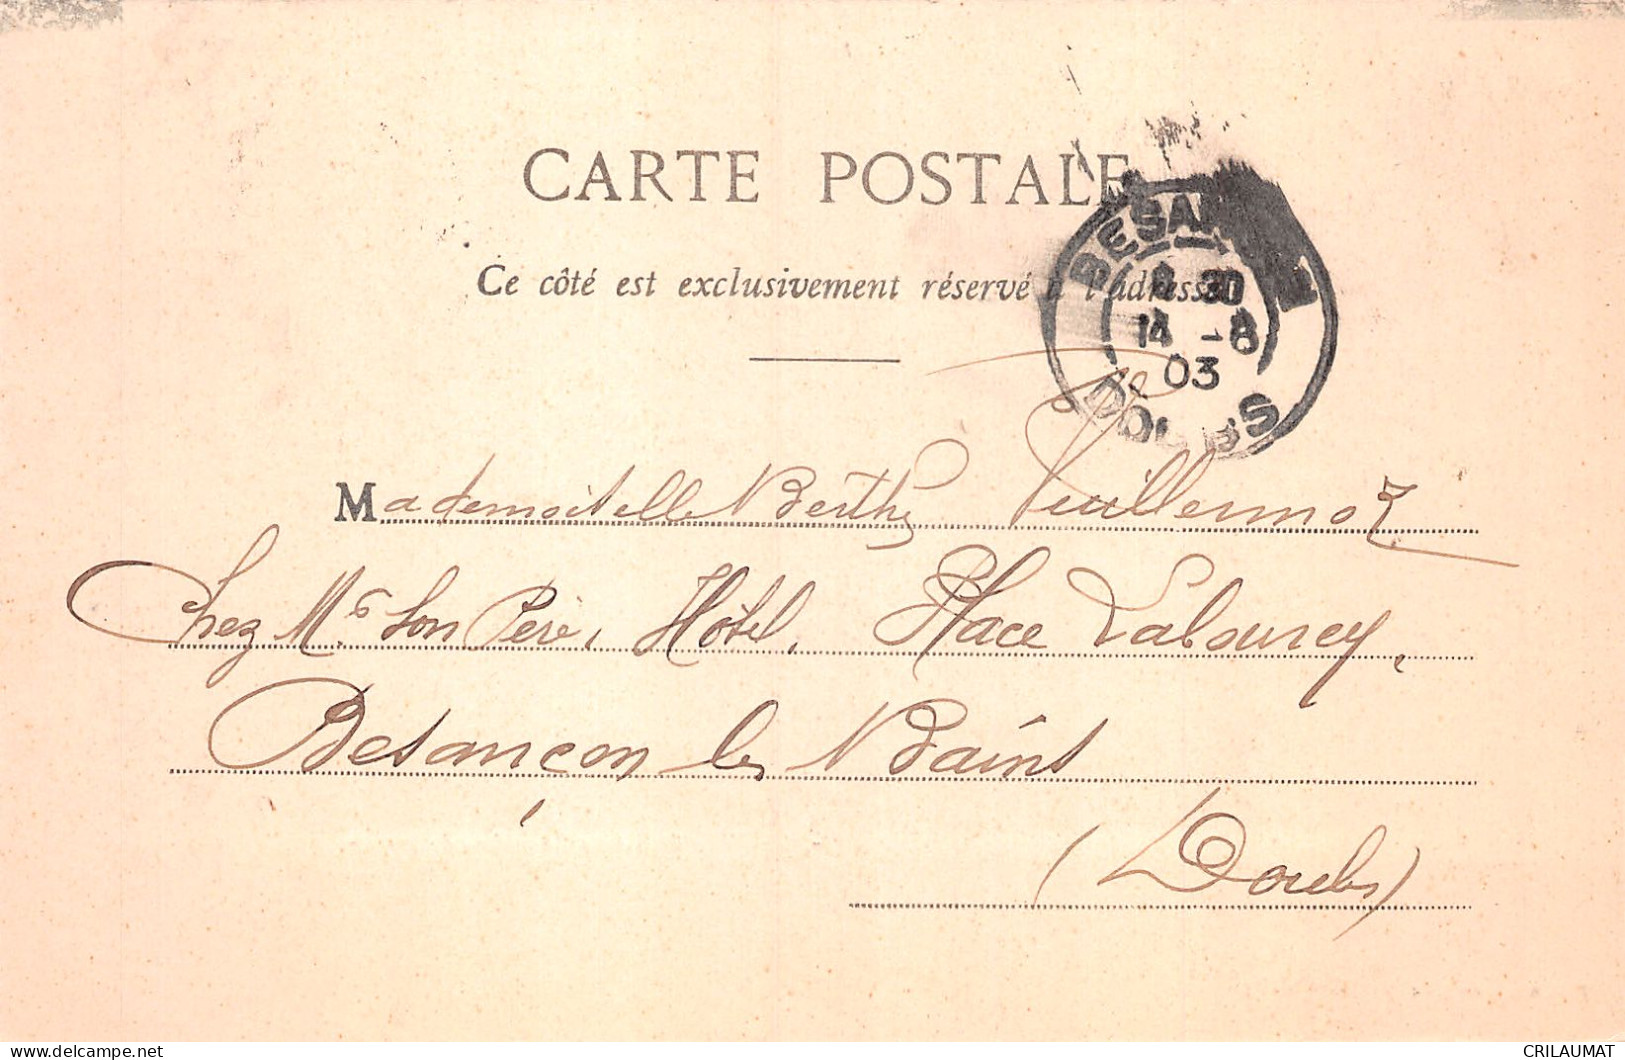 CARTE POSTALE
Ce côté est exclusivement réservé à l'adresse
BESANÇON
8 30
14 -8
03
DOUBS
Mademoiselle Berthe Vuillermoz
Chez Mr son Père, Hôtel, Place Labourey,
Besançon les Bains
(Doubs)
CRILAUMAT